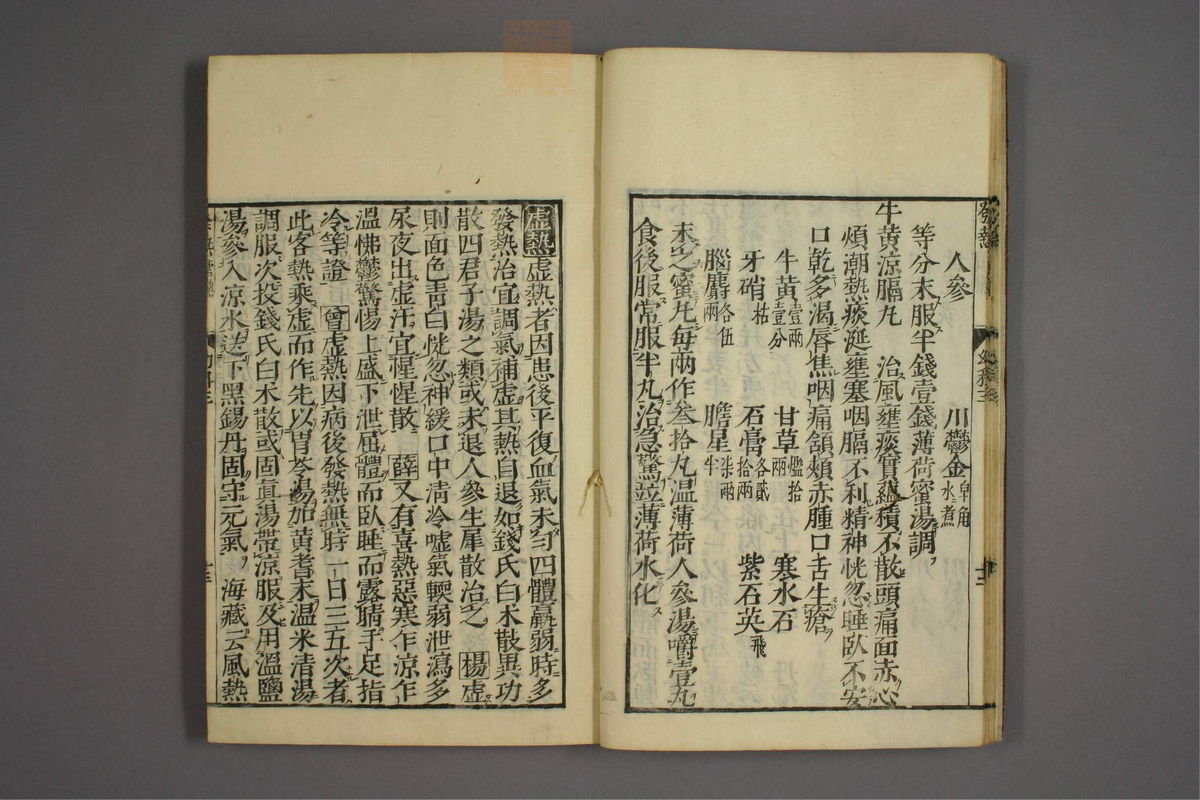 發熱
人參 川鬱金皁角水煮
等分末服半錢壹錢薄荷蜜湯調
牛黃涼膈丸 治風壅痰實蘊積不散頭痛面赤心
煩潮熱痰涎壅塞咽膈不利精神恍忽睡臥不安
口乾多渴唇焦咽痛頷頰赤腫口舌生瘡
牛黃壹兩壹分 甘草爁拾兩 寒水石
牙硝枯 石膏各貳拾兩 紫石英飛
腦麝各伍兩 膽星柒兩半
末之蜜丸每兩作叁拾丸溫薄荷人參湯嚼壹丸
食後服常服半丸治急驚並薄荷水化
虛熱虛熱者因患後平復血氣未勻四體羸弱時多
發熱治宜調氣補虛其熱自退如錢氏白朮散異功
散四君子湯之類或未退人參生犀散治之楊虛
則面色靑白恍忽神緩口中淸冷噓氣輭弱泄瀉多
尿夜出虛汗宜惺惺散薛又有喜熱惡寒乍涼乍
溫怫鬱驚惕上盛下泄屈體而臥睡而露睛手足指
冷等證曾虛熱因病後發熱無時一日三五次者
此客熱乘虛而作先以胃苓湯加黃耆末溫米淸湯
調服次投錢氏白朮散或固眞湯帶涼服及用溫鹽
湯參入涼水送下黑錫丹固守元氣 海藏云風熱